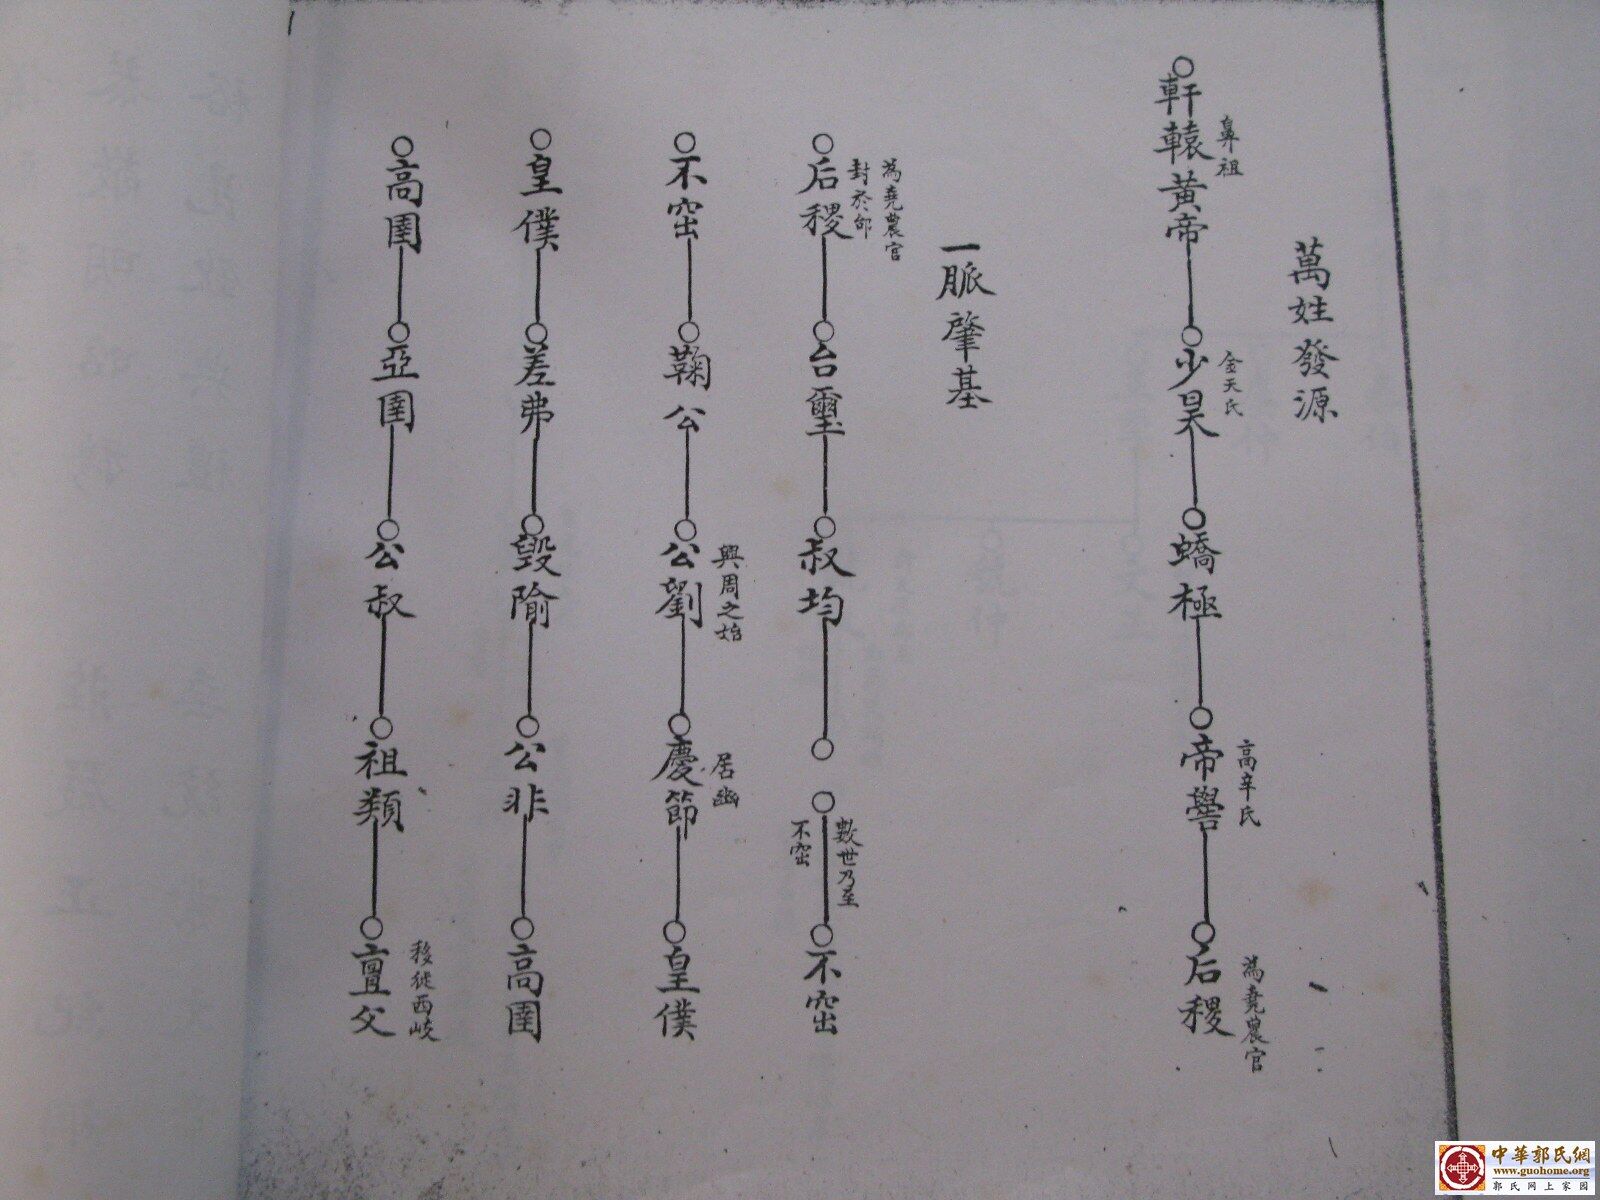 萬姓發源
軒轅黃帝
鼻祖
少昊
金天氏
蟜極
帝嚳
高辛氏
后稷
為堯農官
一脈肇基
后稷
為堯農官
封於邰
台璽
叔均
數世乃至
不窋
不窋
不窋
鞠公
公劉
興周之始
慶節
居豳
皇僕
皇僕
差弗
毀隃
公非
高圉
高圉
亞圉
公叔
祖類
亶父
移徙西岐
中華郭氏網
www.guohome.org
郭氏网上家园